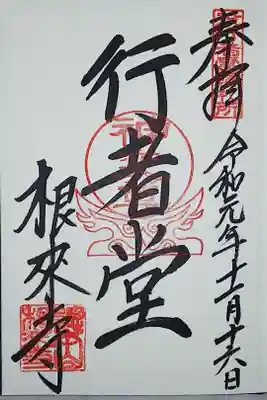 奉拝
令和元年十一月十六日
行者堂
根來寺